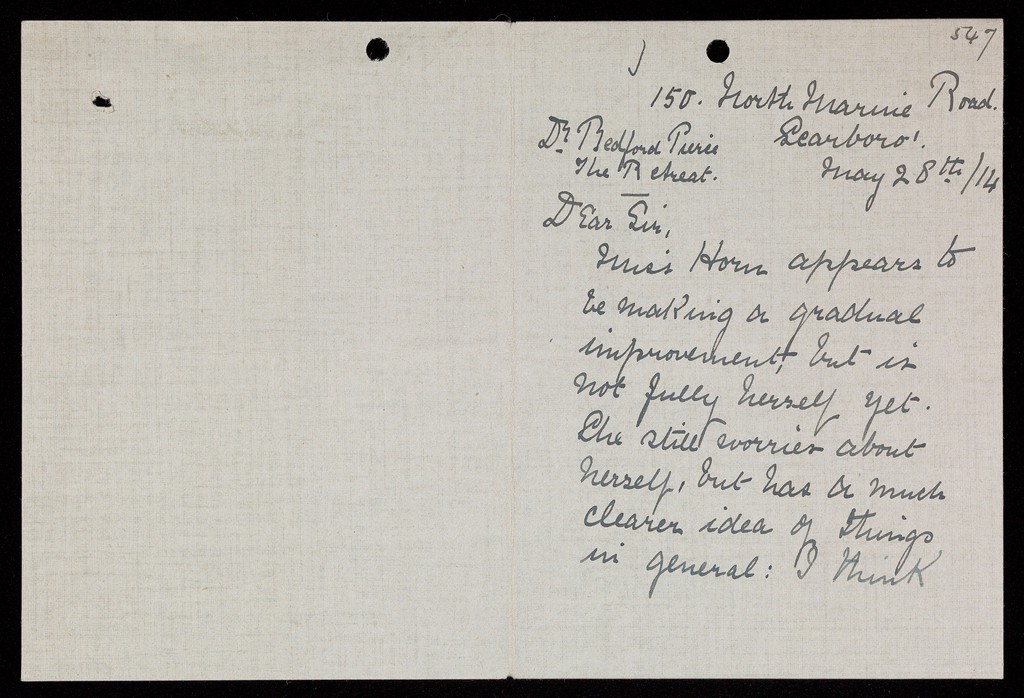 547
150. North Marine Road.
Scarboro'.
Dr Bedford Pierce
The Retreat.
May 28th/14
Dear Sir,
Miss Horn appears to
be making a gradual
improvement, but is
not fully herself yet.
She still worries about
herself, but has a much
clearer idea of things
in general: I think